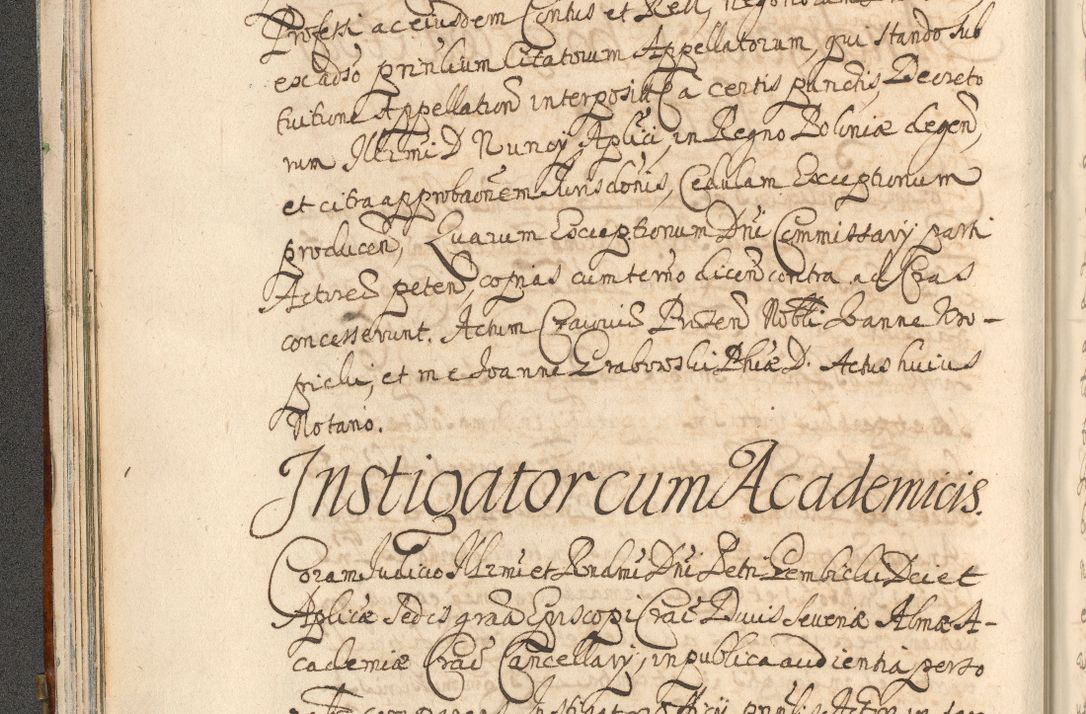 Professi ac eiusdem Contus et Rell, Negotiorum
ex adso prnlium Citatorum Appellatorum, qui stando sub
tuitione Appellation interposita a certis punctis, Decreto
rum Illrmi D Nuncy, Aplici, in Regno Poloniæ degen,
et citra approbaonem Jurisdonis, Cedulam Exceptionum
producen, Quarum Exceptionum Dni Commissary parti
Actorea peten, copias cum termo dicen contra ad Cras
concesserunt. Actum Cracoviæ Præsen Nobli Joanne Kro-
picki, et me Joanne Grabowski Phiæ D. Actus huius
Notario.
Instigator cum Academicis.
Coram Iudicio Illrmi et Rndmi Dni Petri Gembicki Dei et
Aplicæ Sedis graa Episcopi Crac Ducis Severiæ Almæ A-
cademiæ Crac Cancellary, in publica audientia perso
comparens Instigator